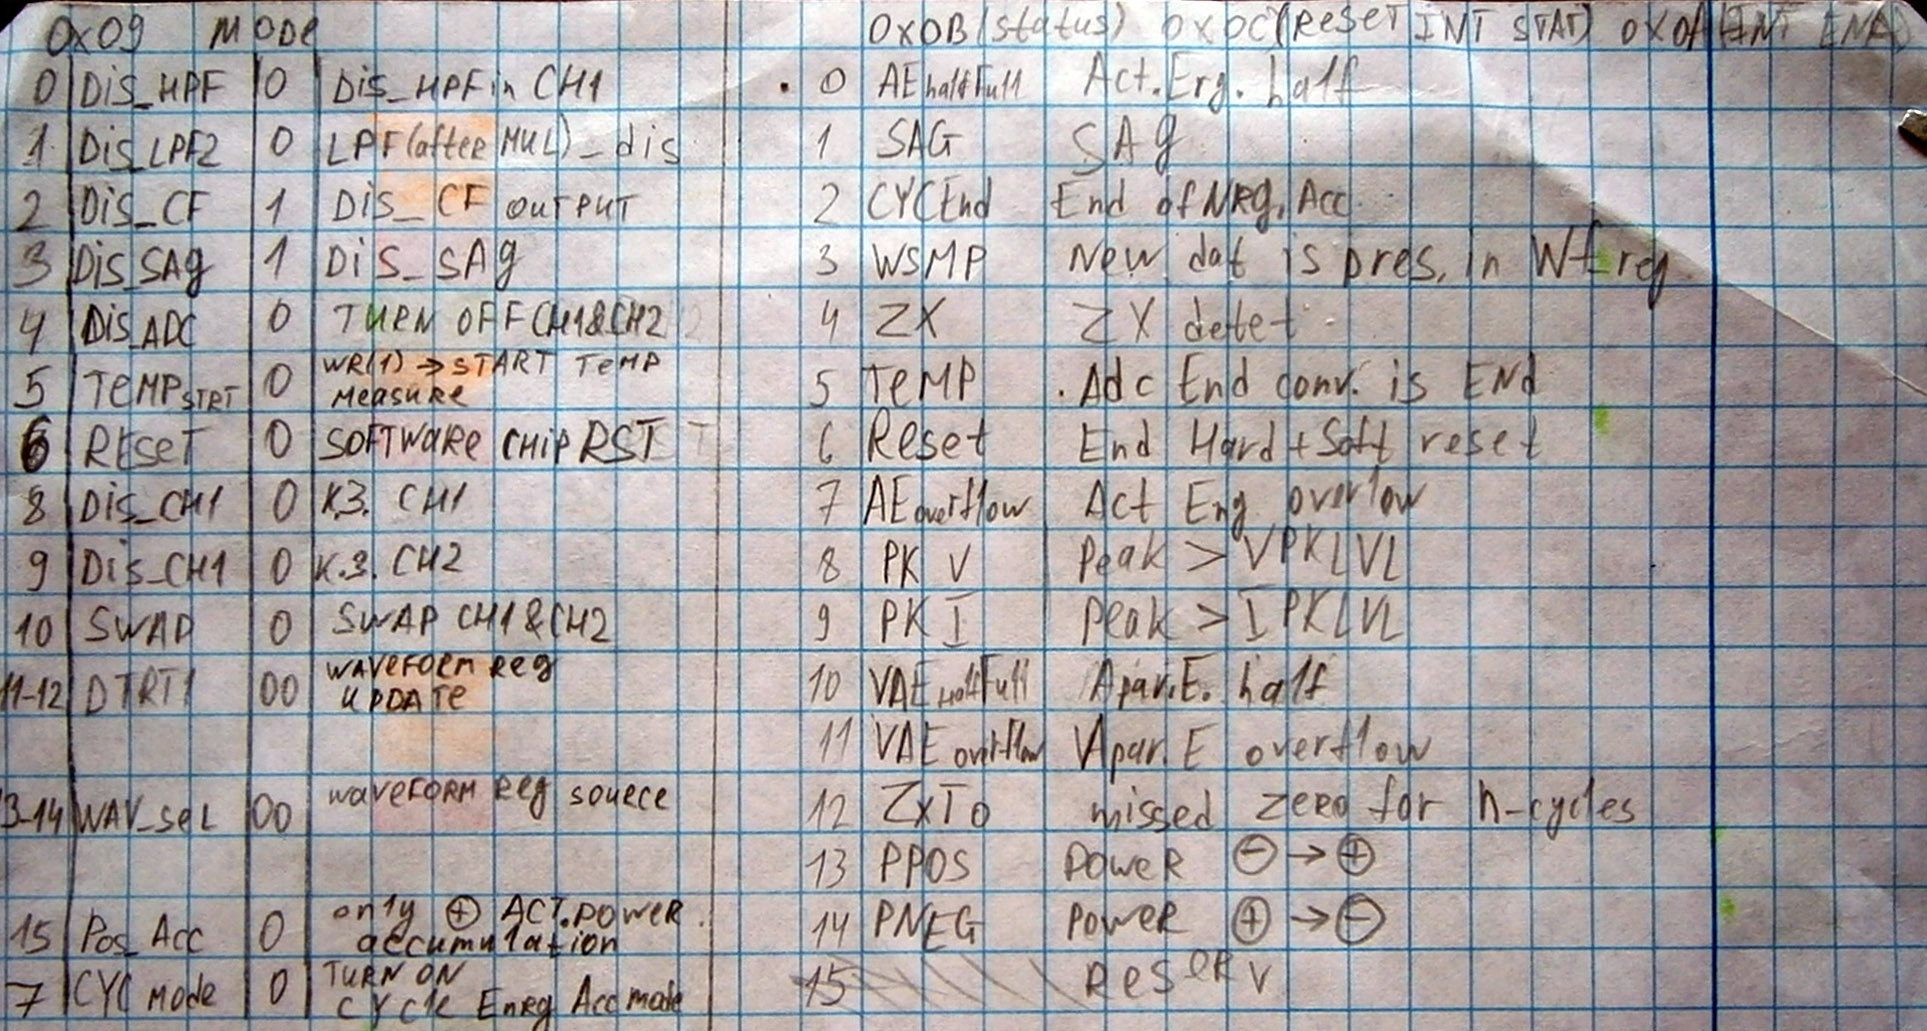 0x09 MODe
0 Dis_HPF 0 Dis_HPF in CH1
1 Dis_LPF2 0 LPF(after MUL)_dis
2 Dis_CF 1 Dis_CF OUTPUT
3 Dis_SAg 1 Dis_SAg
4 Dis_ADC 0 TURN OFF CH1&CH2
5 TeMPSTRT 0 WR(1)→START TeMP
Measure
6 ReseT 0 SOFTWARe CHiP RST
8 Dis_CH1 0 К.З. CH1
9 Dis_CH1 0 К.З. CH2
10 SWAP 0 SWAP CH1&CH2
11-12 DTRT1 00 WAVeFORM Reg
UPDATe
13-14 WAV_seL 00 waveFORM Reg souece
15 Pos_Acc 0 only ⊕ ACT.POWeR
accumulation
7 CYC Mode 0 TURN ON
CYCle Enrg Acc mode
0x0B(status) 0x0C(ReseT INT STAT) 0x0A(INT ENA)
0 AEhalfFull Act.Erg. half
1 SAG SAg
2 CYCEnd End of NRg.Acc.
3 WSMP New dat is pres. in Wf reg
4 ZX ZX detet
5 TeMP Adc End conv. is END
6 Reset End Hard+Soft reset
7 AEoverflow Act Eng overlow
8 PK V Peak > VPKLVL
9 PK I peak > IPKLVL
10 VAEHalfFull Apar.E. half
11 VAE overflow Apar.E overflow
12 ZxTo missed zeRo for n-cycles
13 PPOS poweR ⊖→⊕
14 PNEG poweR ⊕→⊖
15 ReseRv